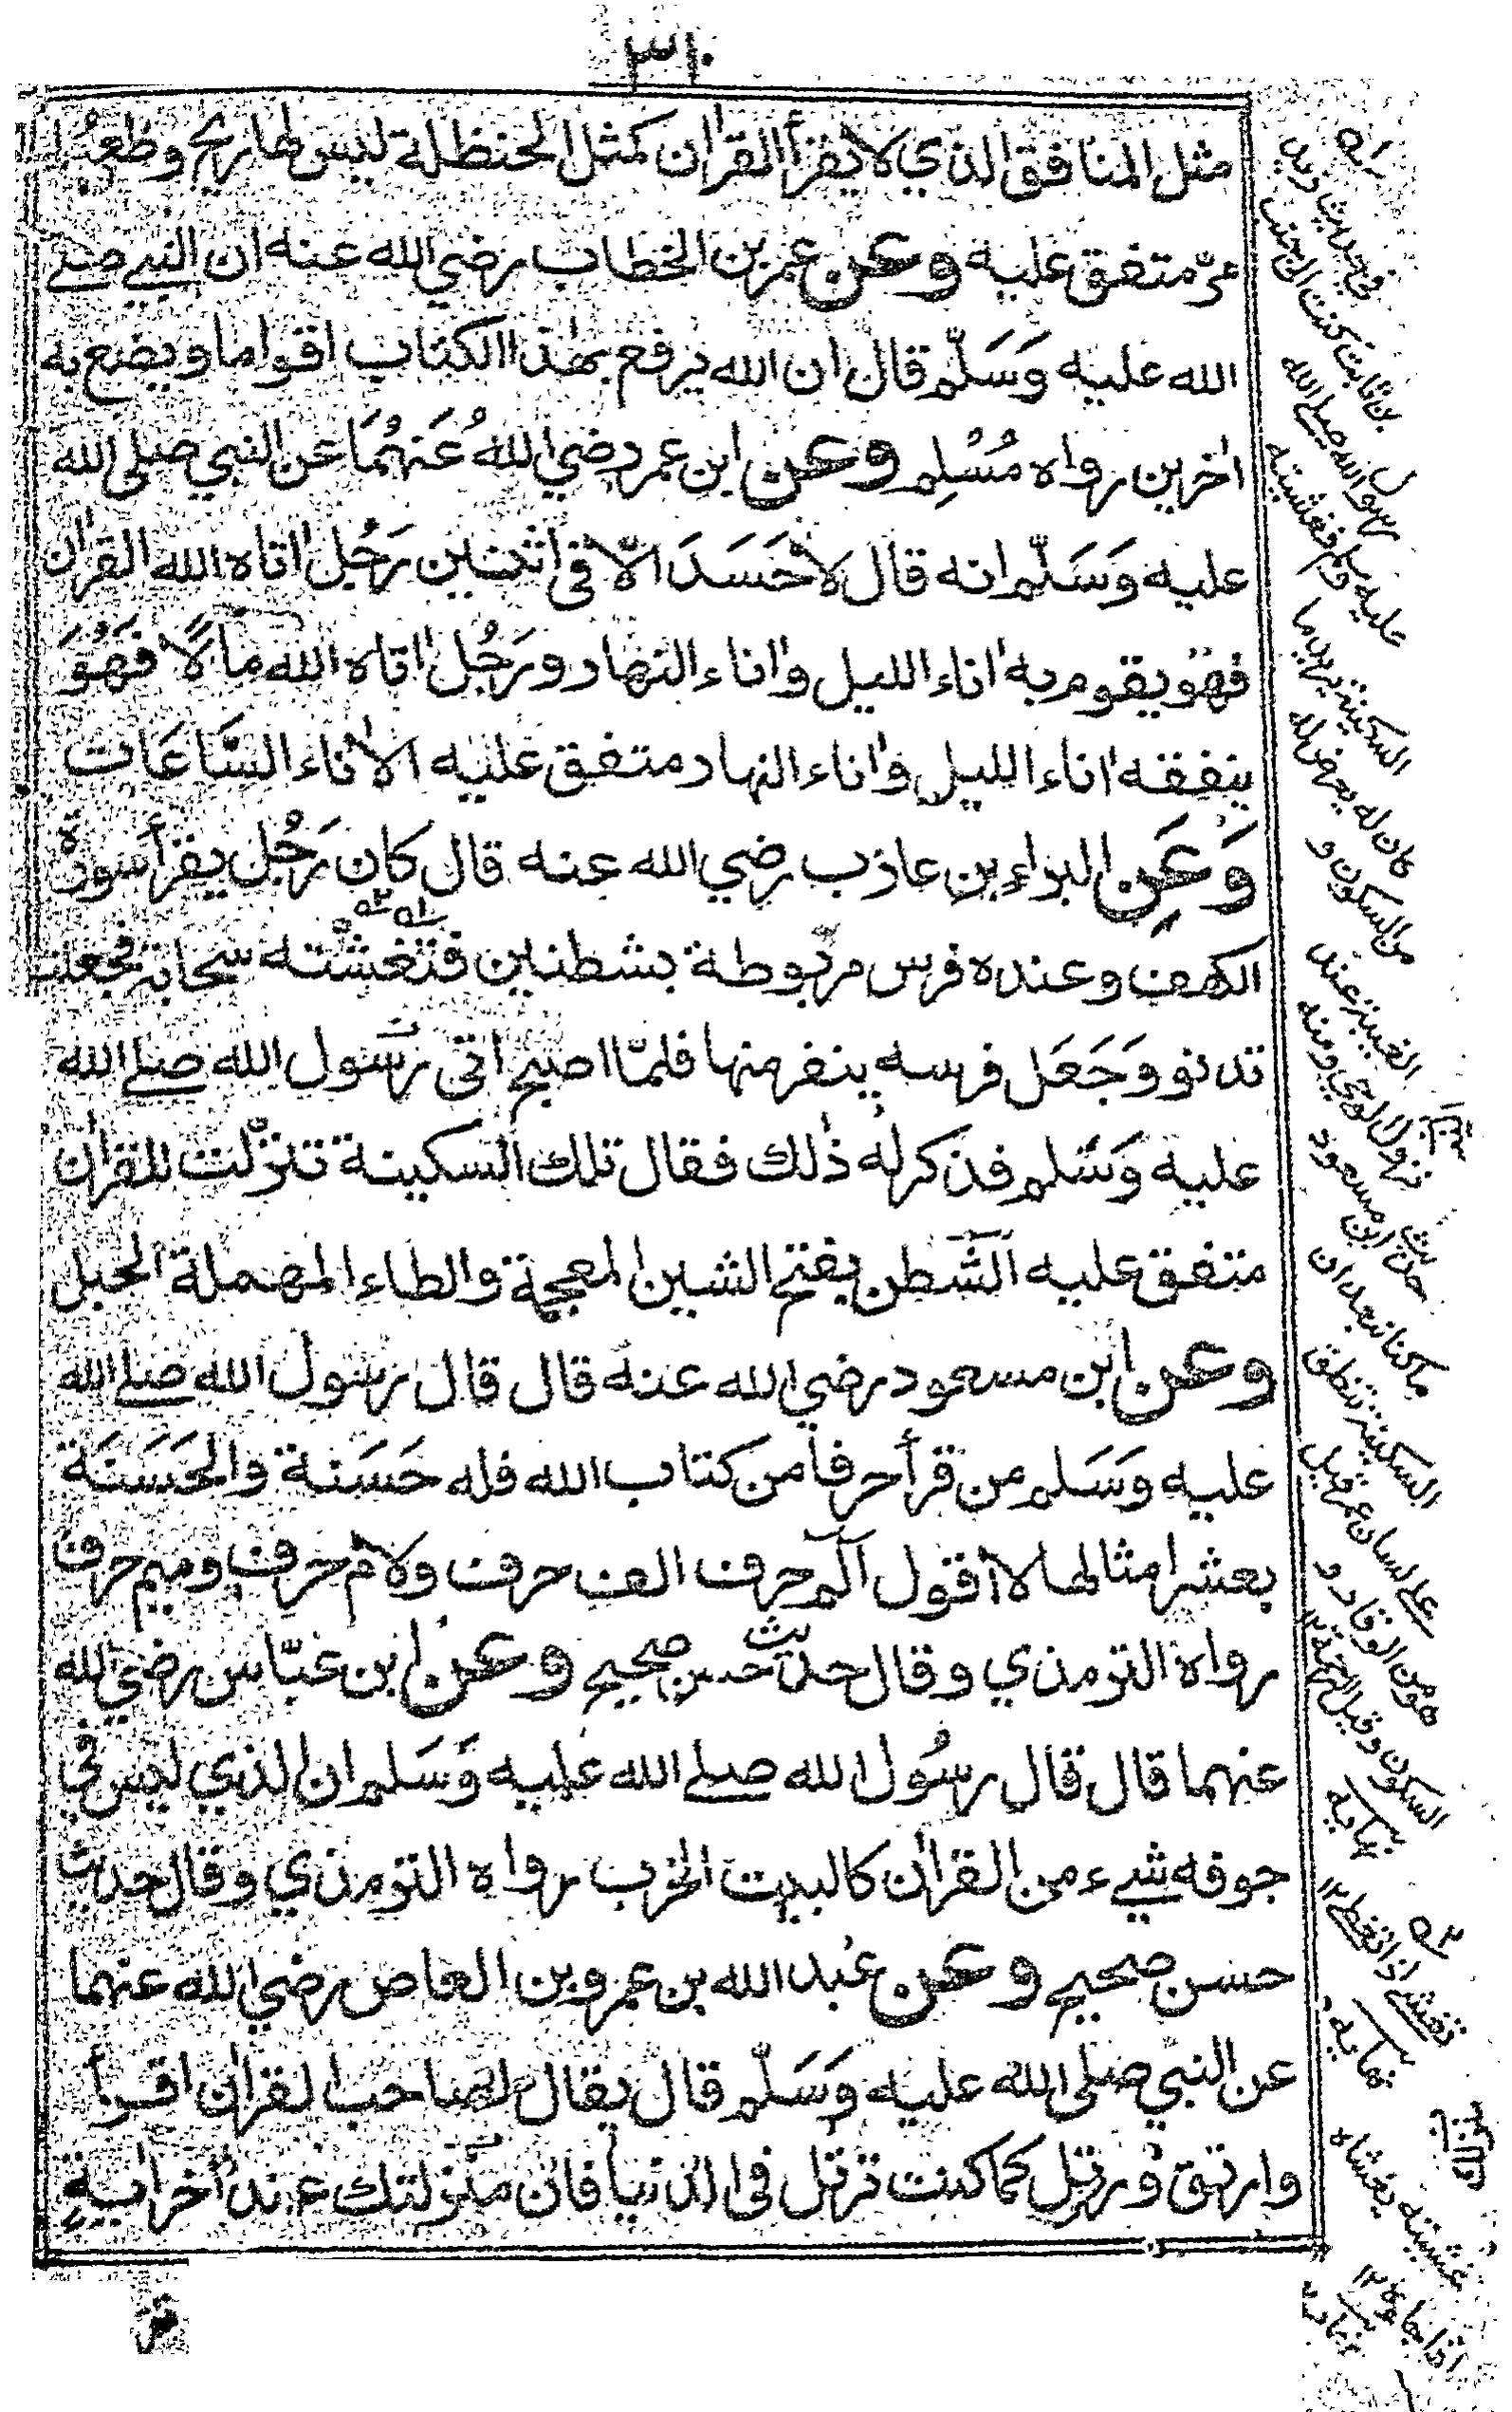 ٣١٠
مثل المنافق الذي لا يقرأ القراٰن كمثل الحنظلة ليس لها ريح وطعمها
مرّ متفق عليه وعن عمر بن الخطاب رضي الله عنه ان النبي صلى
الله عليه وَسَلّم قال ان الله يرفع بهذا الكتاب اقواما ويضع به
اٰخرين رواه مُسْلِم وعن ابن عمر رضي اللهُ عَنهُمَا عن النبي صلى الله
عليه وَسَلّم انه قال لاحَسَدَ الّا فى اثنين رَجُل اٰتاه الله القراٰن
فهو يقوم به اٰناء الليل واٰناء النهار ورَجُل اٰتاه الله مالًا فَهُوَ
ينفقه اٰناء الليل واٰناء النهار متفق عليه الاٰناء السَّاعَات
وَعَنِ البراءِ بن عازب رضي الله عنه قال كان رَجُل يقرأ سورة
الكهف وعنده فرس مربوطة بشطنين فتغشّته سحابة فجعلت
تدنو وَجَعَل فرسه ينفر منها فلمّا اصبح اتى رسول الله صلى الله
عليه وَسَلم فذكر لهُ ذٰلك فقال تلك السكينة تنزّلت للقراٰن
متفق عليه الشَّطن بفتح الشين المعجمة والطاء المهملة الحبل
وعن ابن مسعود رضي الله عنه قال قال رسول الله صلى الله
عليه وَسَلم من قرأ حرفا من كتاب الله فله حَسَنة والحَسَنَة
بعشر امثالها لا اقول الٓمٓ حرف الف حرف ولام حرف وميم حرف
رواه الترمذي وقال حديث حسن صحيح وعن ابن عبّاس رضي الله
عنهما قال قال رسُول الله صلى الله عليه وَسَلم ان الذي ليس في
جوفه شيء من القراٰن كالبيت الخرب رواه الترمذي وقال حديث
حسن صحيح وعن عبد الله بن عمرو بن العاص رضي الله عنهما
عن النبي صلى الله عليه وَسَلّم قال يقال لصاحب القراٰن اقرأ
وارتق ورتل كما كنت ترتل فى الدنيا فان منزلتك عند اٰخر اٰيةٍ
في حديث زيد
بن ثابت كنت الى جنب
رسول الله صلى الله
عليه وسلم فغشيته
السكينة يريد ما
كان له يعرض له
من السكون و
الغيبة عند
نزول الوحي ومنه
حديث ابن مسعود
ما كنا نبعد ان
السكينة تنطق
على لسان عمر قيل
هو من الوقار و
السكون وقيل الرحمة ١٢
نهايه
تغشى اذا تغطى ١٢
نهايه
غشيته يغشاه
اذا جاءه ١٢